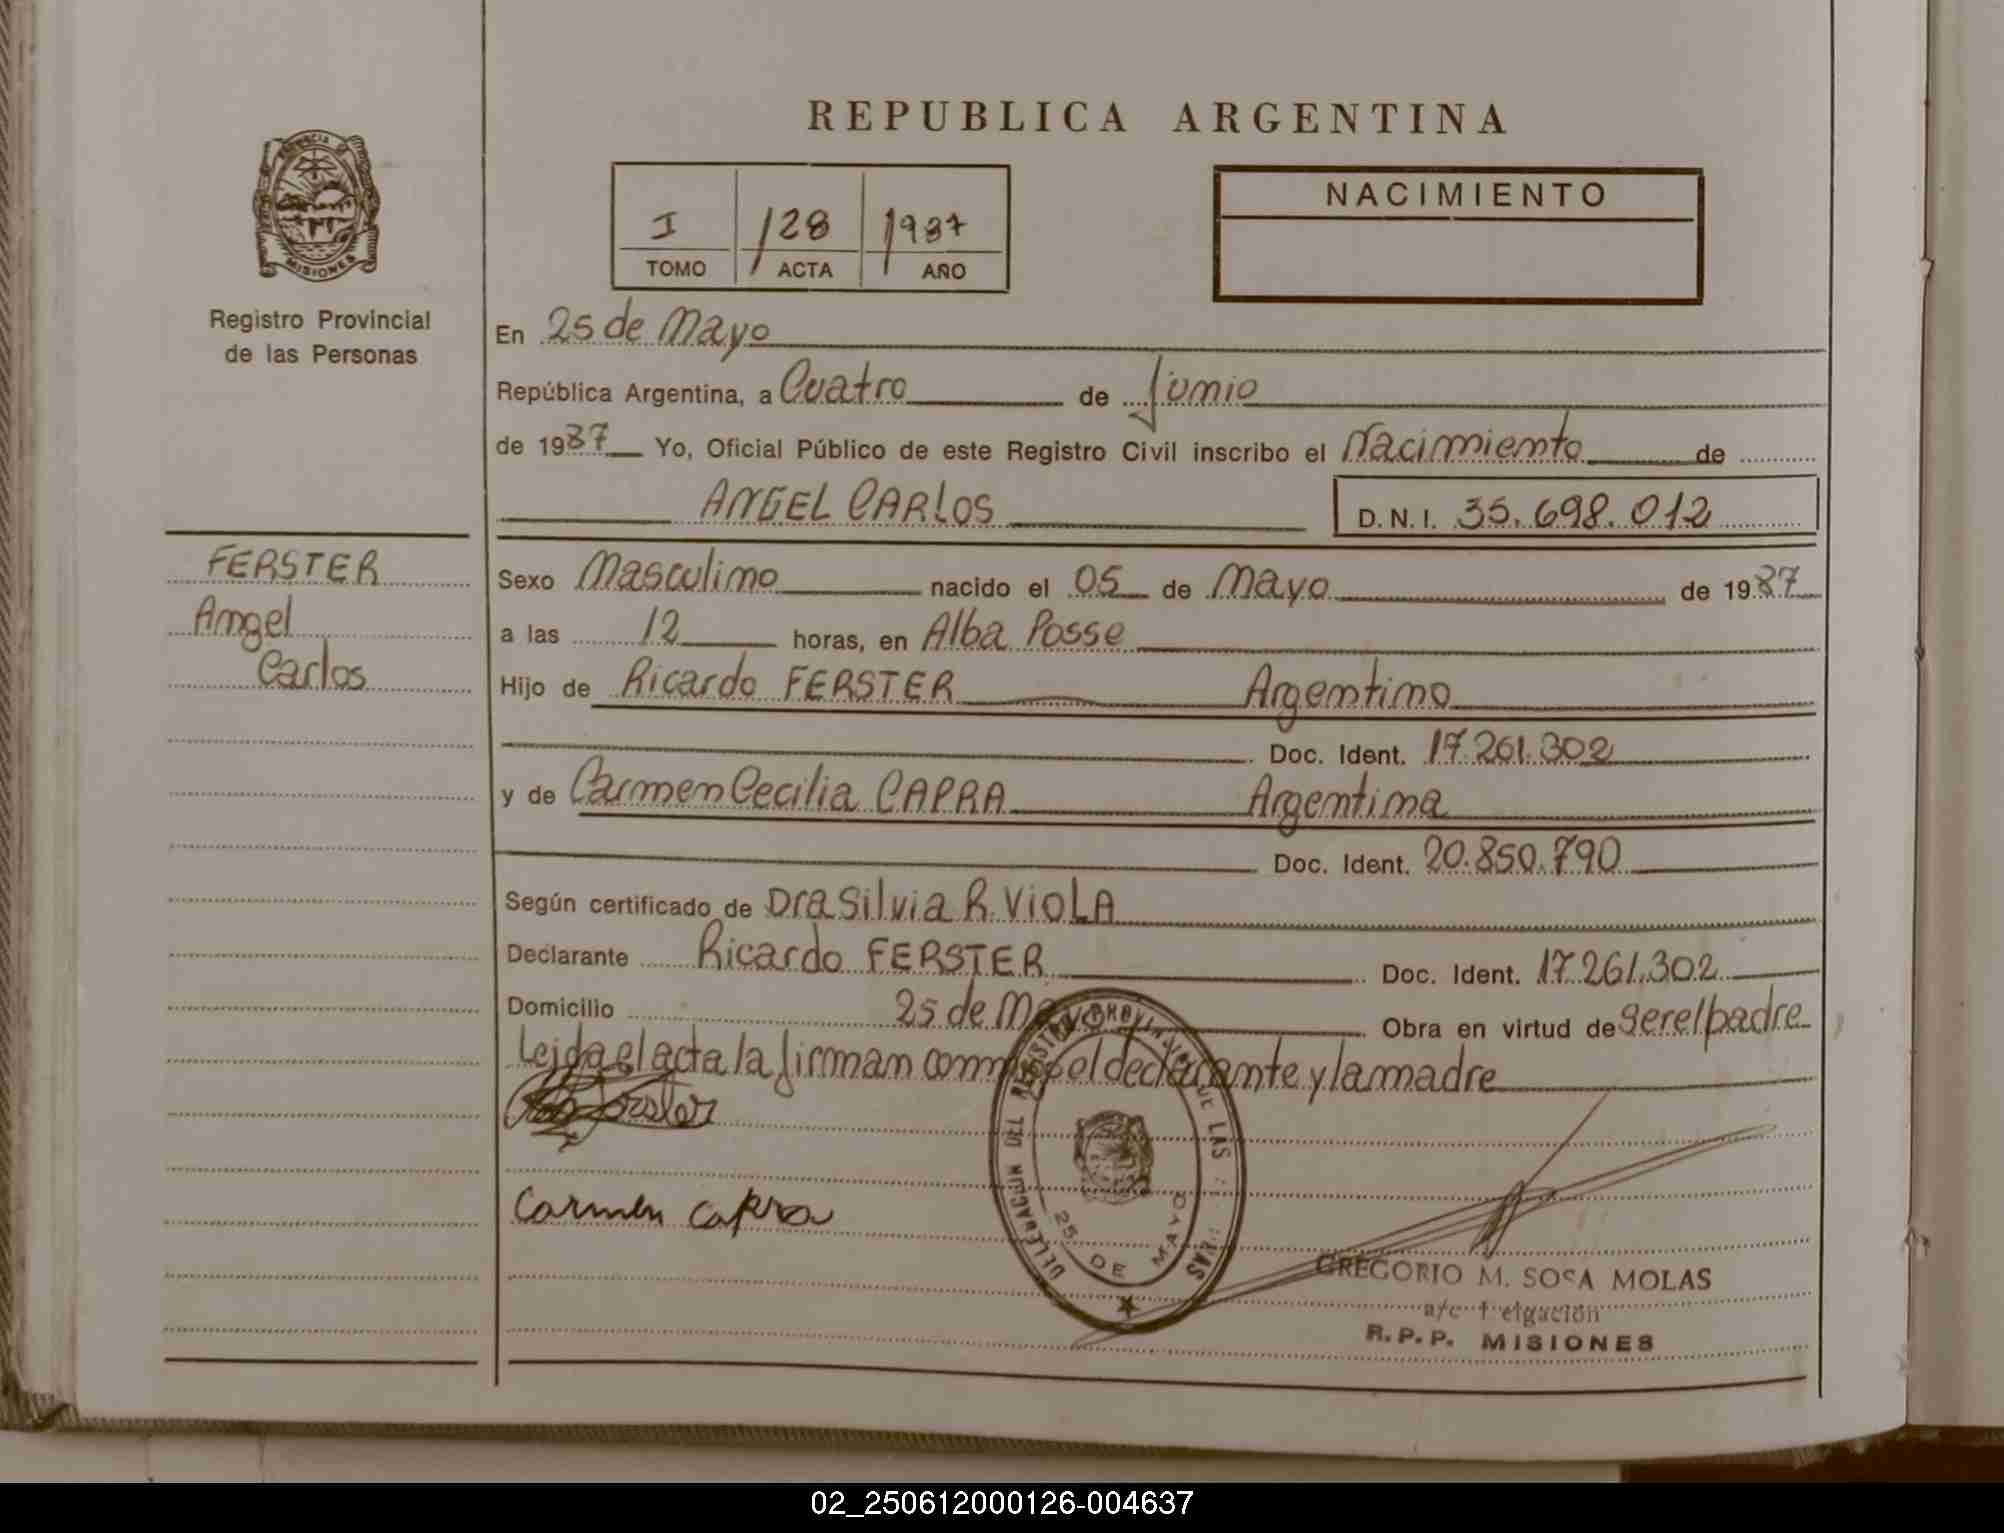 REPUBLICA ARGENTINA
PROVINCIA DE
MISIONES
Registro Provincial
de las Personas
I 128 1987
TOMO ACTA AÑO
NACIMIENTO
En 25 de Mayo
República Argentina, a Cuatro de Junio
de 1987 Yo, Oficial Público de este Registro Civil inscribo el Nacimiento de
ANGEL CARLOS D.N.I. 35.698.012
FERSTER
Angel
Carlos
Sexo Masculino nacido el 05 de Mayo de 1987
a las 12 horas, en Alba Posse
Hijo de Ricardo FERSTER Argentino
Doc. Ident. 17.261.302
y de Carmen Cecilia CAPRA Argentina
Doc. Ident. 20.850.790
Según certificado de Dra Silvia R. VIOLA
Declarante Ricardo FERSTER Doc. Ident. 17.261.302
Domicilio 25 de Mayo Obra en virtud de ser el padre
Leida el acta la firman conmigo el declarante y la madre
Ferster
Carmen Capra
DELEGACION DEL REGISTRO PROVINCIAL DE LAS
25 DE MAYO
GREGORIO M. SOSA MOLAS
a/c
R.P.P. MISIONES
02_250612000126-004637